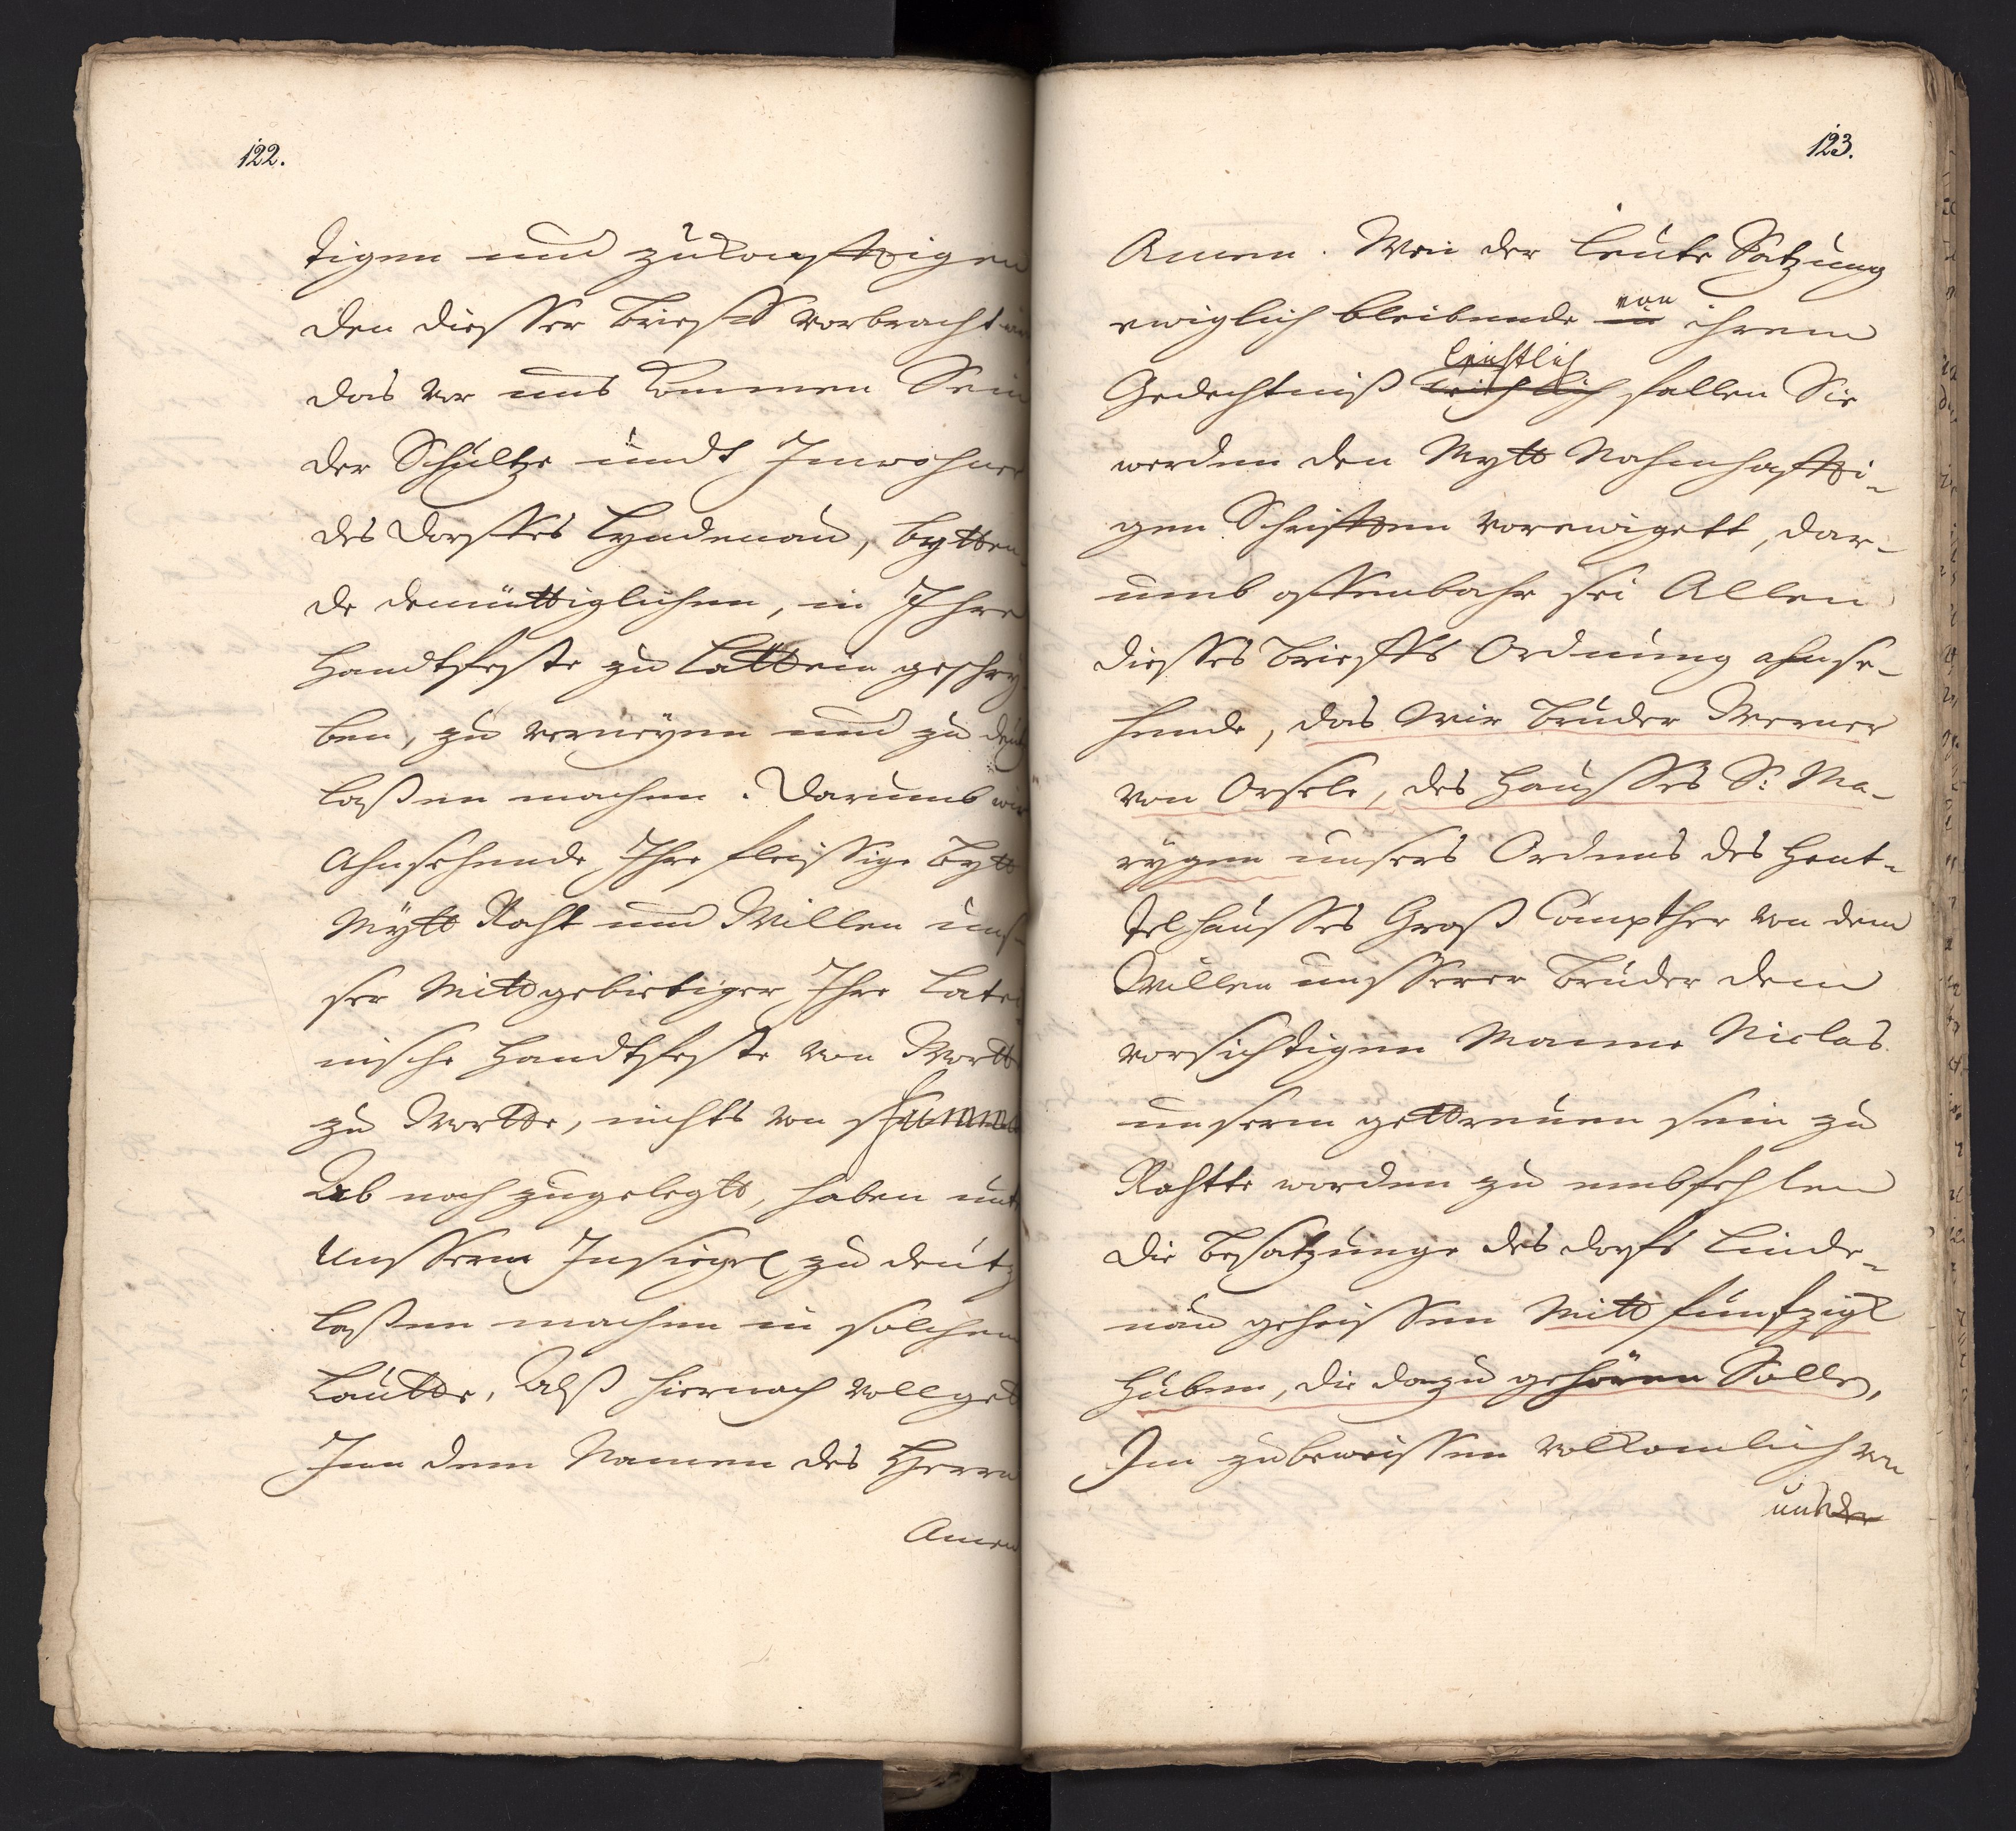 122.
tigen und zukonfftigen
den diesser Brieff vorbracht
das vor uns kommen Sein
der Schultze undt Inwohner
des Dorffes Lyndenau, bytten
de demüttiglichen, in Ihre
Handtfeste zu Lattein geschry
ben, zu verneyen und zu
laßen machen. Darumb wir
Ahnsehende Ihre fleissige Bytt
Mytt Raht und Willen uns-
ser Mittgebietiger Ihre Latei
nische Handtfeste von Wortt
zu Wortte, nichts von
Ab noch zugelegtt, haben unt
Unsserm Insiegel zu deutz
laßen machen in solchem
Lautte, Alß hiernach vollget
Inn dem Namen des Herrn
Amen
123.
Amen. Wen der Leute Satzung
ewiglich bleibende in von ihrem
Gedechtniß leichtlich leichtlich fallen Sie
werden den Mytt Nahmhaffti-
gen Schrifften vorewigett, dar-
umb offenbahr sei Allen
diesses Brieffes Ordnung ahnse-
hende, das Wir Bruder Werner
von Orsele, des Hausses S: Ma-
rygen unsers Ordens des Heut-
telhausses Groß Compther von dem
Willen unsserer Bruder dem
vorsichtigen Manne Niclas
unserm gettreuen sein zu
Rahtte worden zu embfehlen
die Besatzunge des dorfs Linde-
nau geheissen Mitt funfzigk
Huben, die darzu gehören Solle,
Im zubeweissen volkomlich von
unser